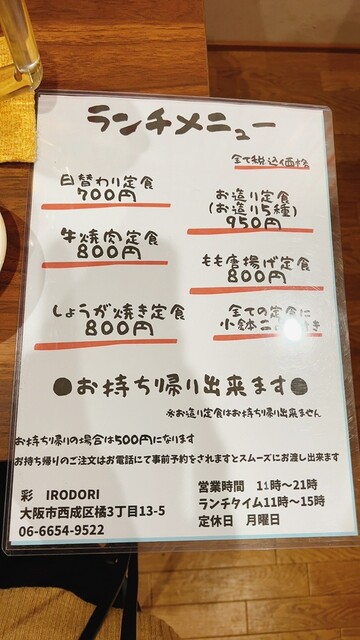 ランチメニュー
全て税込価格
日替わり定食
700円
お造り定食
(お造り5種)
950円
牛焼肉定食
800円
もも唐揚げ定食
800円
しょうが焼き定食
800円
全ての定食に
小鉢二き
●お持ち帰り出来ます●
※お造り定食はお持ち帰り出来ません
お持ち帰りの場合は500円になります
お持ち帰りのご注文はお電話にて事前予約をされますとスムーズにお渡し出来ます
彩 IRODORI
大阪市西成区橘3丁目13-5
06-6654-9522
営業時間 11時〜21時
ランチタイム11時〜15時
定休日 月曜日